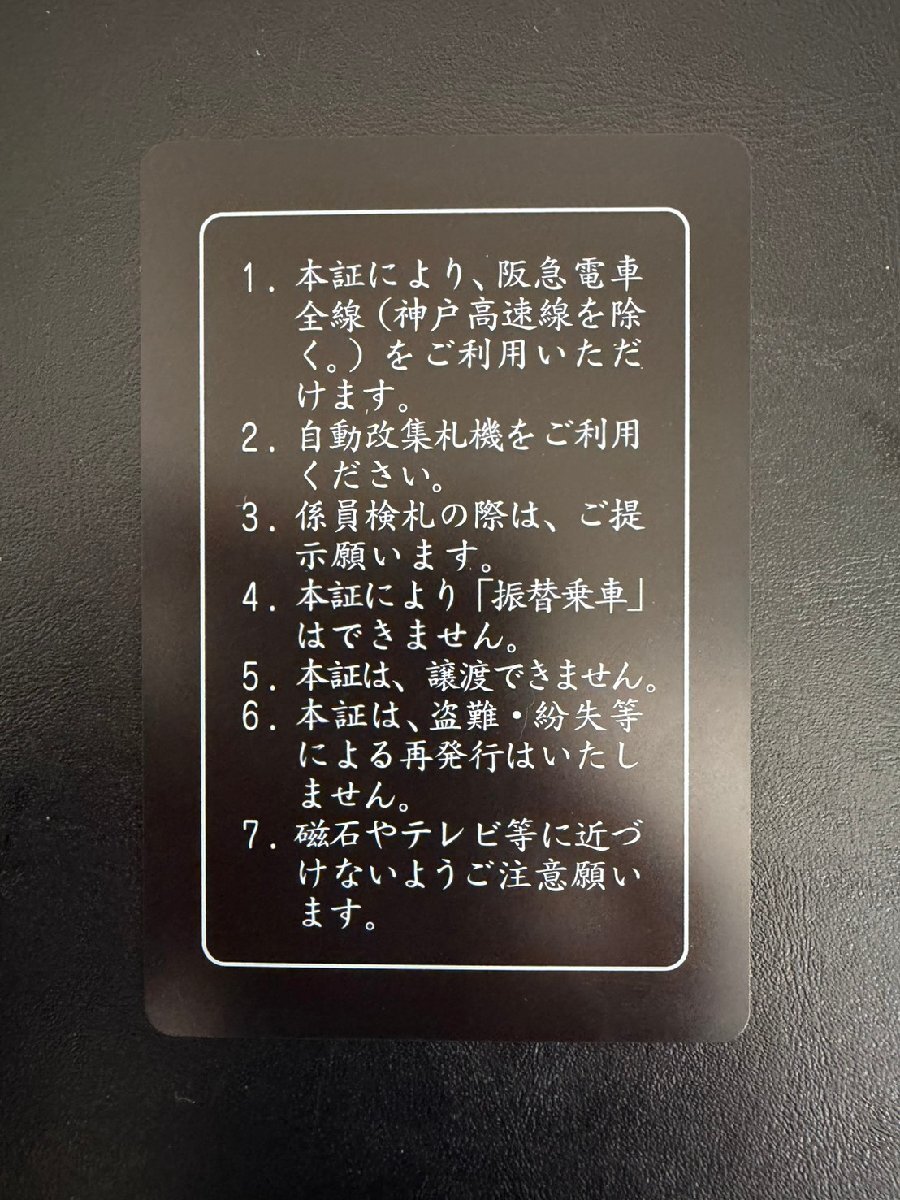 1. 本証により、阪急電車
全線（神戸高速線を除
く。）をご利用いただ
けます。
2. 自動改集札機をご利用
ください。
3. 係員検札の際は、ご提
示願います。
4. 本証により「振替乗車」
はできません。
5. 本証は、譲渡できません。
6. 本証は、盗難・紛失等
による再発行はいたし
ません。
7. 磁石やテレビ等に近づ
けないようご注意願い
ます。